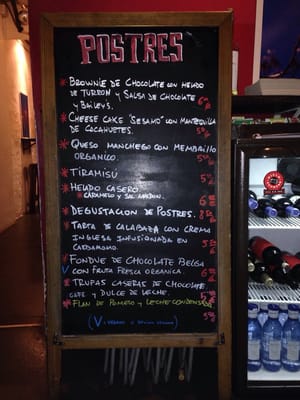 POSTRES
* BROWNIE DE CHOCOLATE CON HELADO
DE TURRON Y SALSA DE CHOCOLATE
Y BAILEYS. 6
* CHEESE CAKE "SESAMO" CON MANTEQUILLA
DE CACAHUETES. 5
* QUESO MANCHEGO CON MEMBRILLO
ORGANICO. 5
* TIRAMISÚ 5
* HELADO CASERO
* CARAMELO Y SAL MALDON. 6
* DEGUSTACION DE POSTRES. 8
* TARTA DE CALABAZA CON CREMA
INGLESA INFUSIONADA EN
CARDAMOMO. 5
* FONDUE DE CHOCOLATE BELGA
V CON FRUTA FRESCA ORGANICA. 6
* TRUFAS CASERAS DE CHOCOLATE
CAFE Y DULCE DE LECHE 5
* FLAN DE POMELO Y LECHE CONDENSADA
5
(V = VEGANO